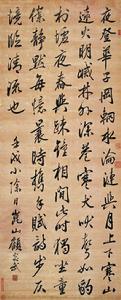 夜登華子岡輞水淪漣與月上下寒山
遠火明滅林外深巷寒犬吠聲如豹
村墟夜舂與疎鐘相間此時獨坐童
僕靜默每思曩時携手賦詩步仄
逕臨清流也
壬戌小除日崑山顧炎武